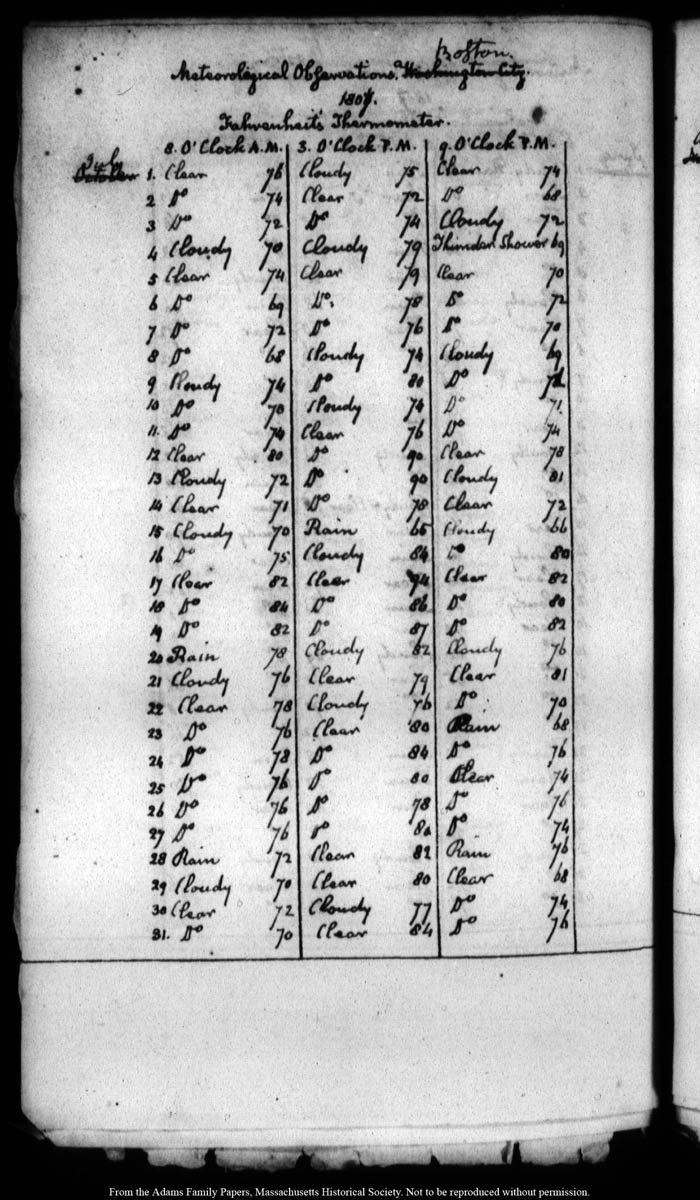 Boston.
Meteorological Observations. Washington City.
1807.
Fahrenheit's Thermometer.
8. O'Clock A.M. 3. O'Clock P.M. 9. O'Clock P.M.
July
October 1. Clear 76 Cloudy 75 Clear 74
2 Do 74 Clear 72 Do 68
3 Do 72 Do 74 Cloudy 72
4 Cloudy 70 Cloudy 79 Thunder Shower 69
5 Clear 74 Clear 79 Clear 70
6 Do 69 Do. 78 Do 72
7 Do 72 Do 76 Do 70
8 Do 68 Cloudy 74 Cloudy 69
9 Cloudy 74 Do 80 Do
10 Do 70 Cloudy 74 Do 71.
11. Do 74 Clear 76 Do 74
12 Clear 80 Do 90 Clear 78
13 Cloudy 72 Do 90 Cloudy 81
14 Clear 71 Do 78 Clear 72
15 Cloudy 70 Rain 65 Cloudy 66
16 Do 75 Cloudy 84 Do 80
17 Clear 82 Clear 94 Clear 82
18 Do 84 Do 86 Do 80
19 Do 82 Do 87 Do 82
20 Rain 78 Cloudy 82 Cloudy 76
21 Cloudy 76 Clear 79 Clear 81
22 Clear 78 Cloudy 76 Do 70
23 Do 76 Clear 80 Rain 68
24 Do 78 Do 84 Do 76
25 Do 76 Do 80 Clear 74
26 Do 76 Do 78 Do 76
27 Do 76 Do 80 Do 74
28 Rain 72 Clear 82 Rain 76
29 Cloudy 70 Clear 80 Clear 68
30 Clear 72 Cloudy 77 Do 74
31. Do 70 Clear 84 Do 76
From the Adams Family Papers, Massachusetts Historical Society. Not to be reproduced without permission.